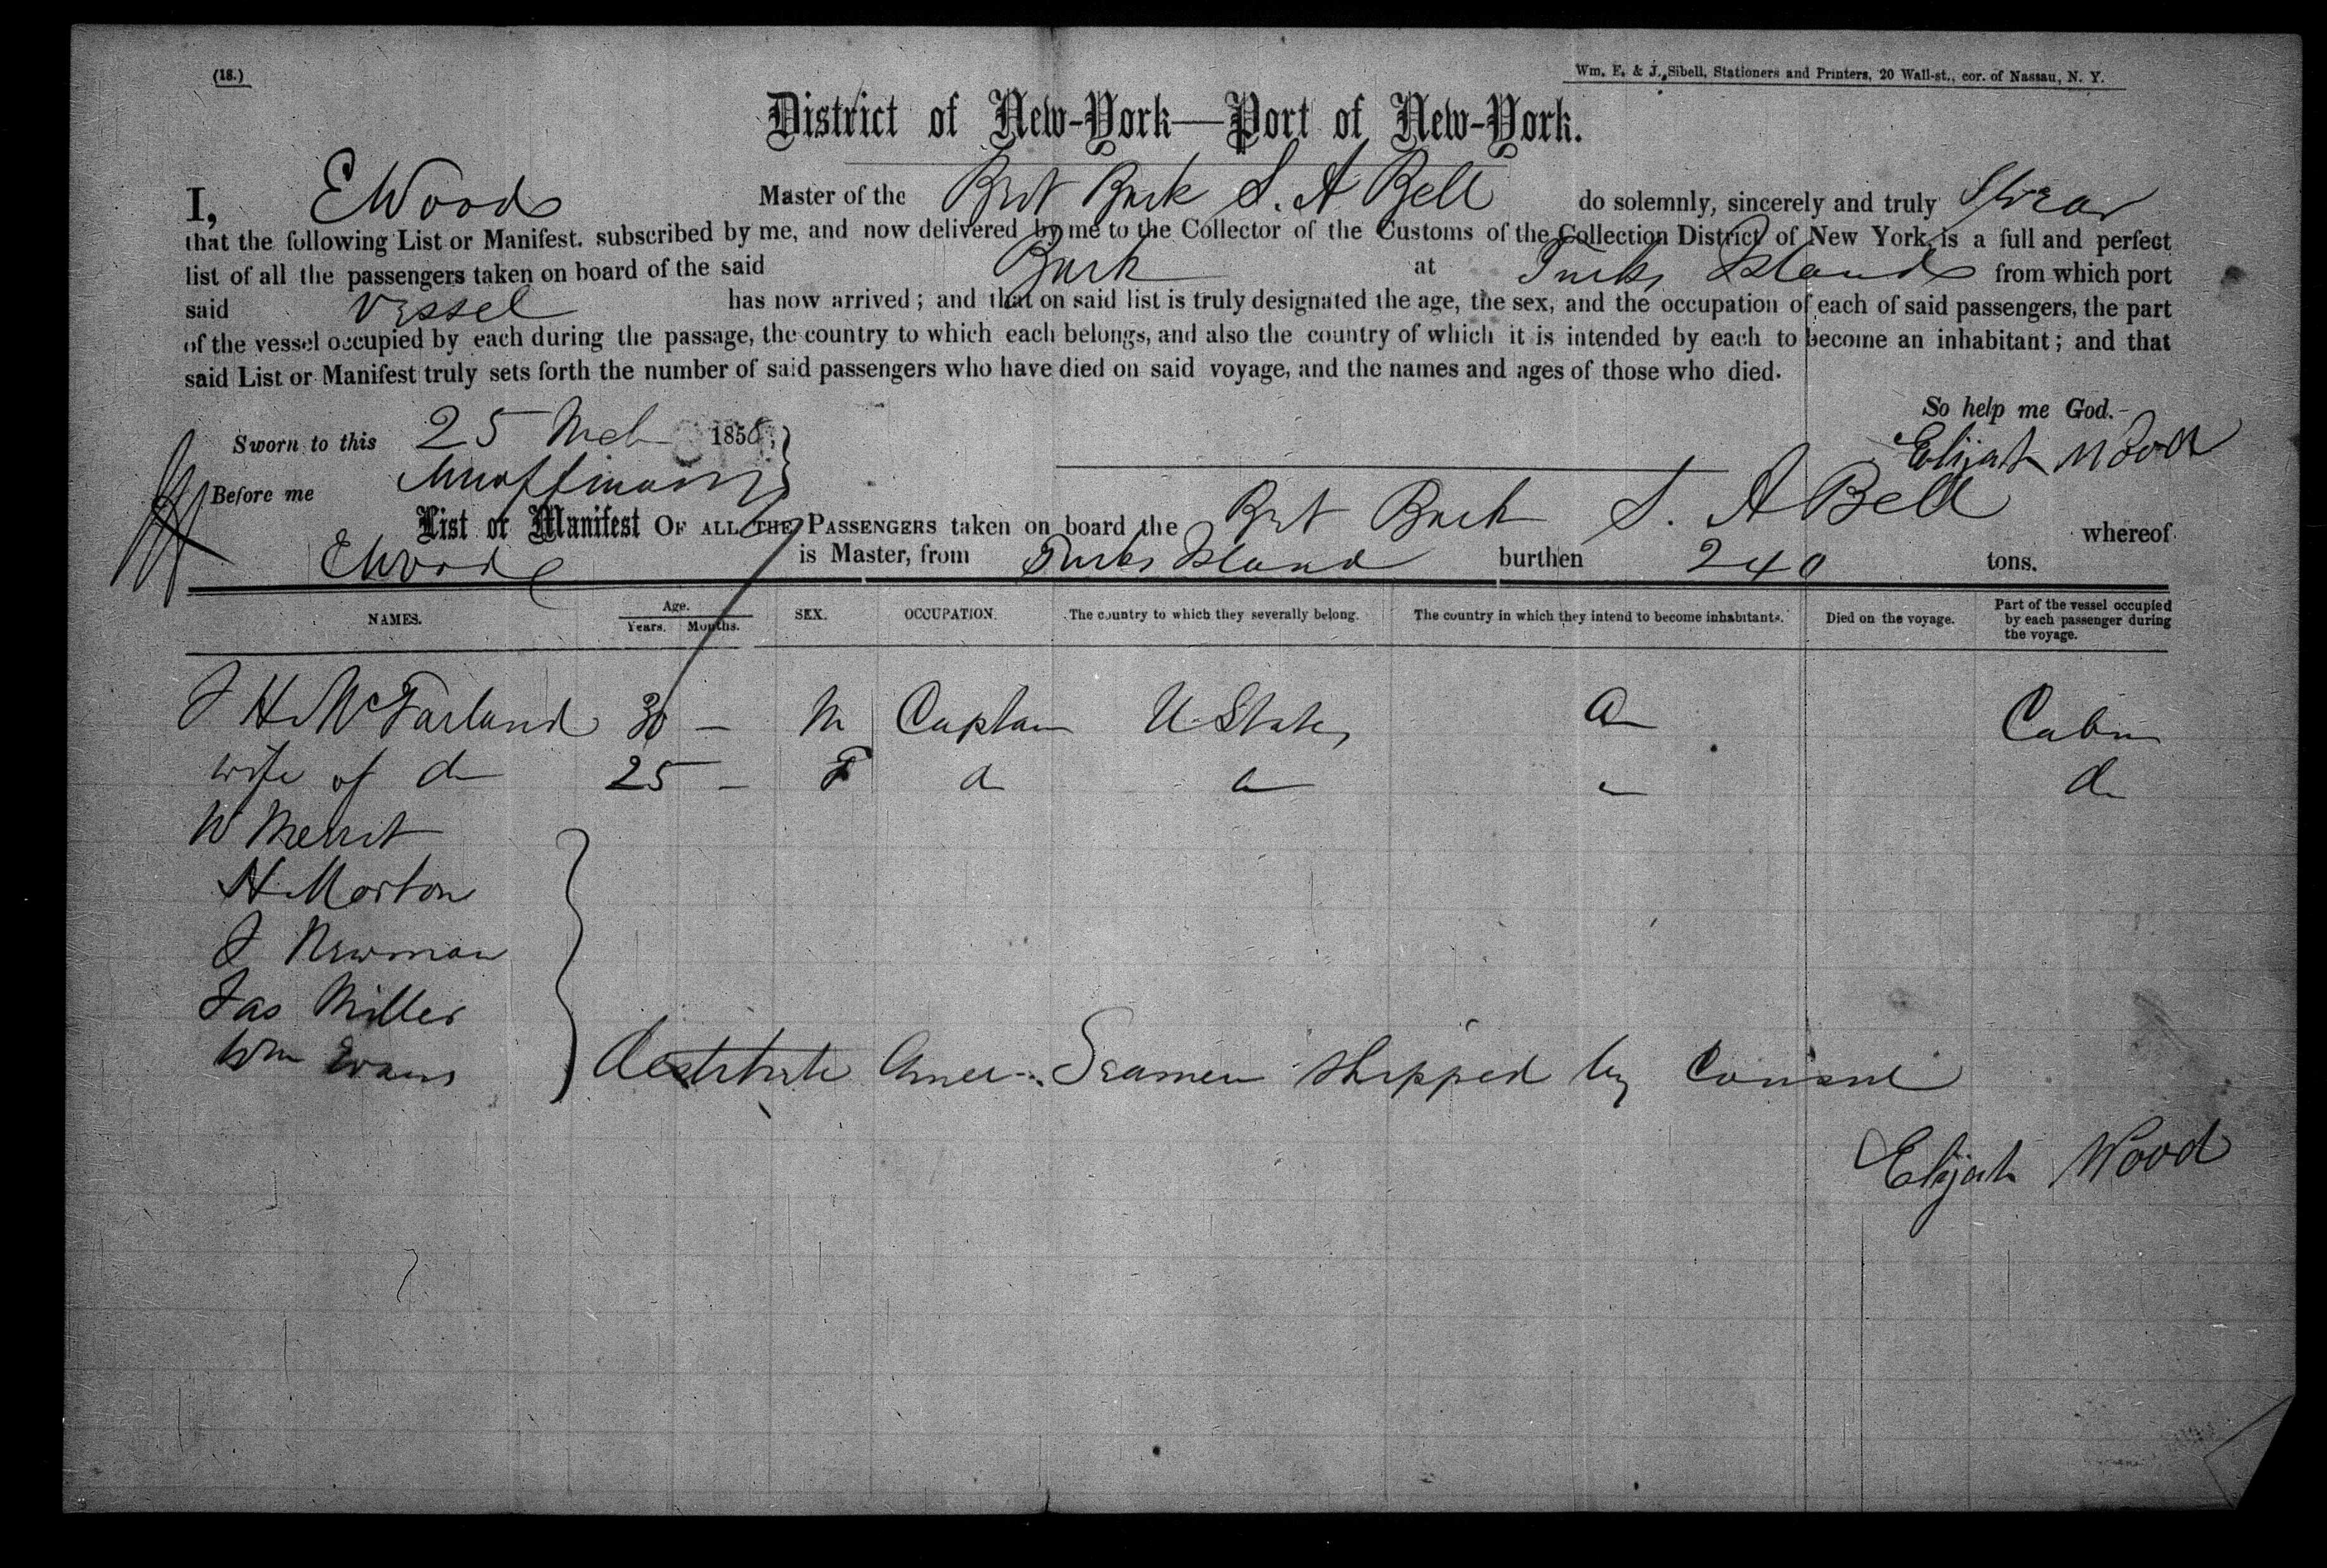 (18.)
Wm. E. & J. Sibell, Stationers and Printers, 20 Wall-st., cor. of Nassau, N. Y.
District of New-York—Port of New-York.
I, E Woods Master of the Brit Bark S. A Bell do solemnly, sincerely and truly Swear
that the following List or Manifest. subscribed by me, and now delivered by me to the Collector of the Customs of the Collection District of New York, is a full and perfect
list of all the passengers taken on board of the said Bark at Turks Islands from which port
said Vessel has now arrived; and that on said list is truly designated the age, the sex, and the occupation of each of said passengers, the part
of the vessel occupied by each during the passage, the country to which each belongs, and also the country of which it is intended by each to become an inhabitant; and that
said List or Manifest truly sets forth the number of said passengers who have died on said voyage, and the names and ages of those who died.
So help me God.
Sworn to this 25 Mch 1858,
Elijah Wood
Before me
List or Manifest OF ALL THE PASSENGERS taken on board the Brt Bark S. A Bell whereof
E Wood is Master, from Turks Island burthen 240 tons.
NAMES. Age. Years. Months. SEX. OCCUPATION. The country to which they severally belong. The country in which they intend to become inhabitants. Died on the voyage. Part of the vessel occupied by each passenger during the voyage.
J H McFarland 30 – M Captain U States Cabin
wife of do 25 – F do do do
W Merrit
H Morton
J Newman
Jas Miller
Wm Evans } destitute Amer. Seamen shipped by Consul
Elijah Wood